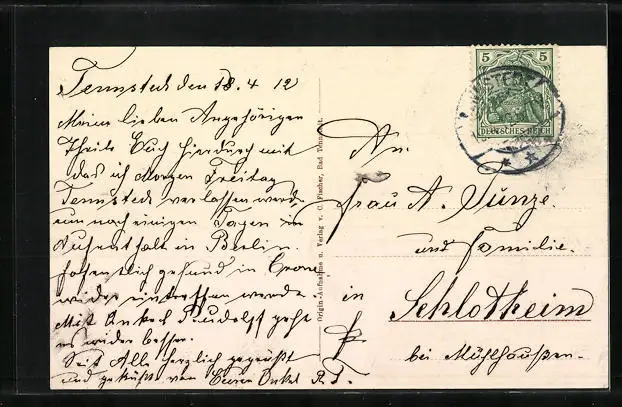 Tennstedt den 18.4 12
Meine lieben Angehörigen
Theile Euch hierdurch mit
das ich Morgen Freitag
Tennstedt verlassen werde
um nach einigen Tagen in
Aufenthalt in Berlin.
hoffentlich gesund in
wider eintreffen werde.
Mit Onkel Rudolf geht
es wider besser.
Seit Alle herzlich gegrüßt
und geküßt von Euren Onkel A. T.
Origin.-Aufnahme u. Verlag v. C. Fischer, Bad Tennstedt.
5 5
DEUTSCHES REICH
An
Frau A.
und Familie.
in Schlotheim
bei Mühlhaußen